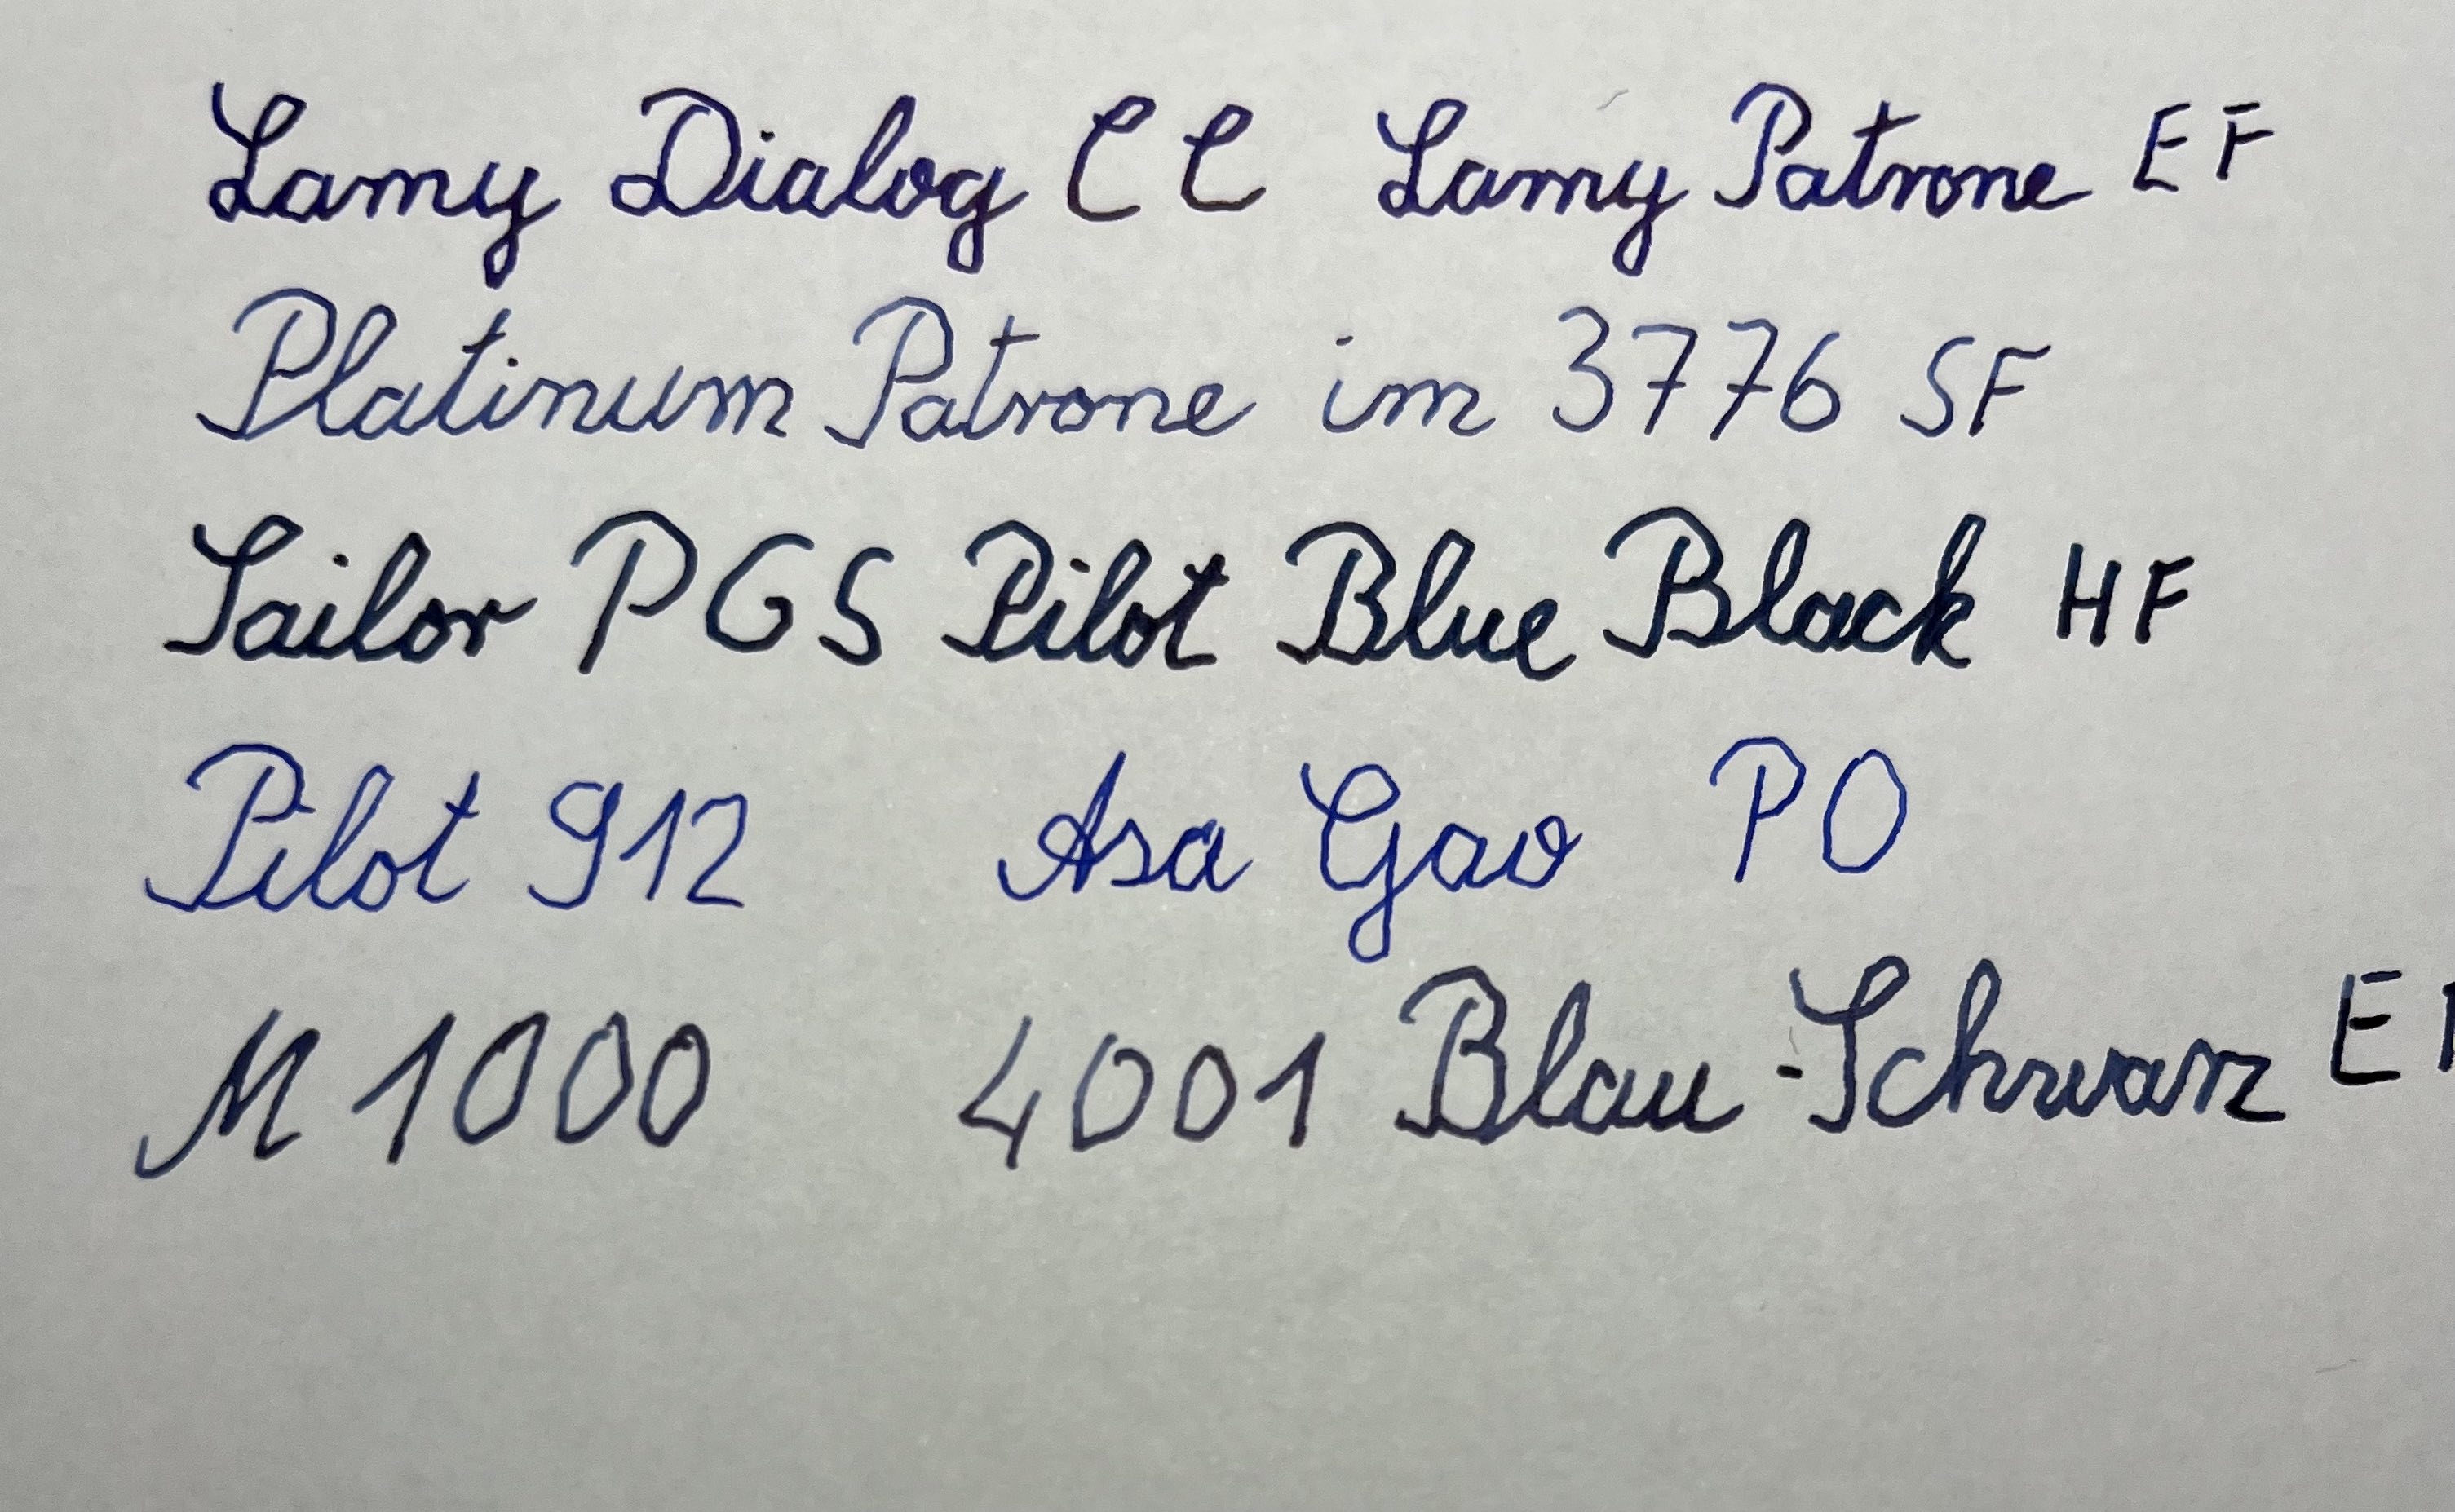 Lamy Dialog CC Lamy Patrone EF
Platinum Patrone im 3776 SF
Sailor PGS Pilot Blue Black HF
Pilot 912 Asa Gao PO
M 1000 4001 Blau-Schwarz E